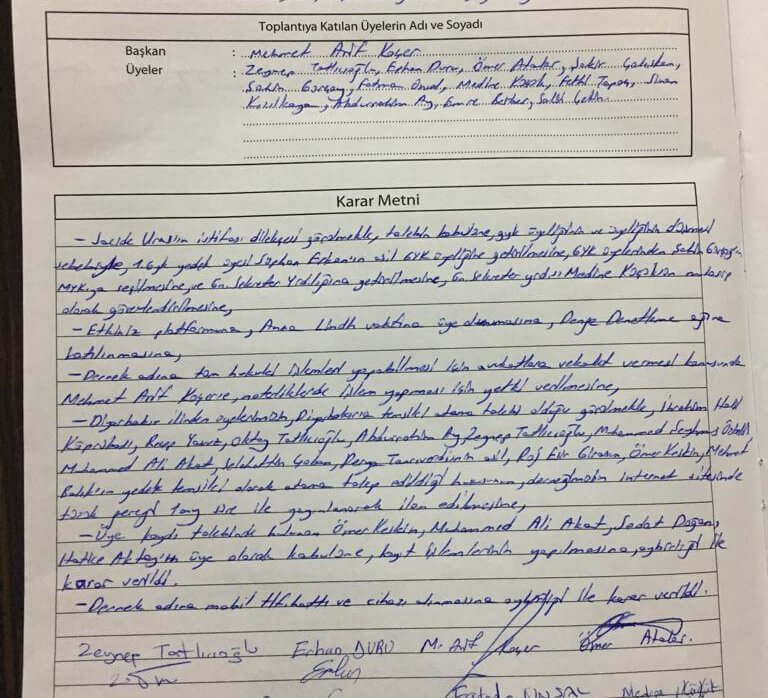 Toplantıya Katılan Üyelerin Adı ve Soyadı
Başkan : Mehmet Arif Koçer
Üyeler : Zeynep Tatlıcıoğlu, Erhan Duru, Ömer Atalar, Şakir Çalışkan,
Şahin Gürçay, Fatman Ünsal, Medine Fethi Sinan
Kızılkaya, Abdurrahim Ay, Emre Berber, Salih Çetin.
Karar Metni
- Jacide Uras'ın istifası dilekçesi görülmekle, talebin kabulüne, gyk üyeliğinin ve üyeliğinin düşmesi
sebebiyle, 1. Gyk yedek üyesi Erkan'ın asil GYK üyeliğine getirilmesine, GYK üyelerinden Şahin Gürçay'ın
MYK'ya seçilmesine, ve Gn. Sekreter Yrdlığına getirilmesine, Gn. Sekreter yrdısı Medine muhasip
olarak görevlendirilmesine,
- Ethiniz platformuna, Anna Lindh vakfına üye olunmasına, Denge Denetleme ağına
katılınmasına,
- Dernek adına tüm hukuki işlemleri yapabilmesi için avukatlara vekalet vermesi konusunda
Mehmet Arif Koçer'e, noterliklerde işlem yapması için yetki verilmesine,
- Diyarbakır ilinden üyelerimizin, Diyarbakıra temsilci atama talebi olduğu görülmekle, İbrahim Halil
Köprübaşı, Recep Yavuz, Oktay Tatlıcıoğlu, Abdurrahim Ay, Zeynep Tatlıcıoğlu, Muhammed Seyhmus
Muhammed Ali Akat, Selahattin Çoban, Derya Tanrıverdinin asil, Roj Esir Girasun, Ömer Keskin, Mehmet
Balık'ın yedek temsilci olarak atama talep edildiği hususunun, derneğimizin internet sitesinde
1 ay süre ile yayınlanarak ilan edilmesine,
- Üye kaydı talebinde bulunan Ömer Keskin, Muhammed Ali Akat, Sedat Doğan,
Hatice Aktay'ın üye olarak kabulüne, kayıt işlemlerinin yapılmasına, oybirliği ile
karar verildi.
- Dernek adına mobil hattı ve cihazı alınmasına oybirliği ile karar verildi.
Zeynep Tatlıcıoğlu Erhan DURU M. Arif Koçer Ömer Atalar
ÜNSAL Medine